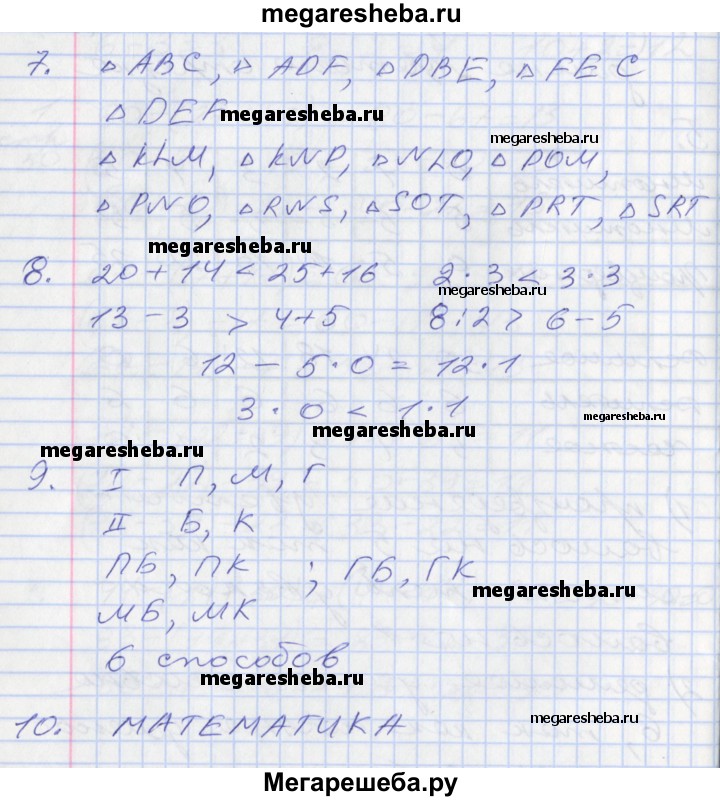 megaresheba.ru
7. △ ABC, △ ADF, △ DBE, △ FEC
△ DEF megaresheba.ru
megaresheba.ru
△ KLM, △ KNP, △ NLO, △ POM,
△ PNO, △ RNS, △ SOT, △ PRT, △ SRT
megaresheba.ru
8. 20 + 14 < 25 + 16 2 · 3 < 3 · 3
megaresheba.ru
13 - 3 > 4 + 5 8 : 2 > 6 - 5
12 - 5 · 0 = 12 · 1
3 · 0 < 1 · 1
megaresheba.ru
megaresheba.ru
megaresheba.ru
9. I П, М, Г
II Б, К
ПБ, ПК ; ГБ, ГК
megaresheba.ru
МБ, МК
6 способов
megaresheba.ru
10. МАТЕМАТИКА
megaresheba.ru
Мегарешеба.ру